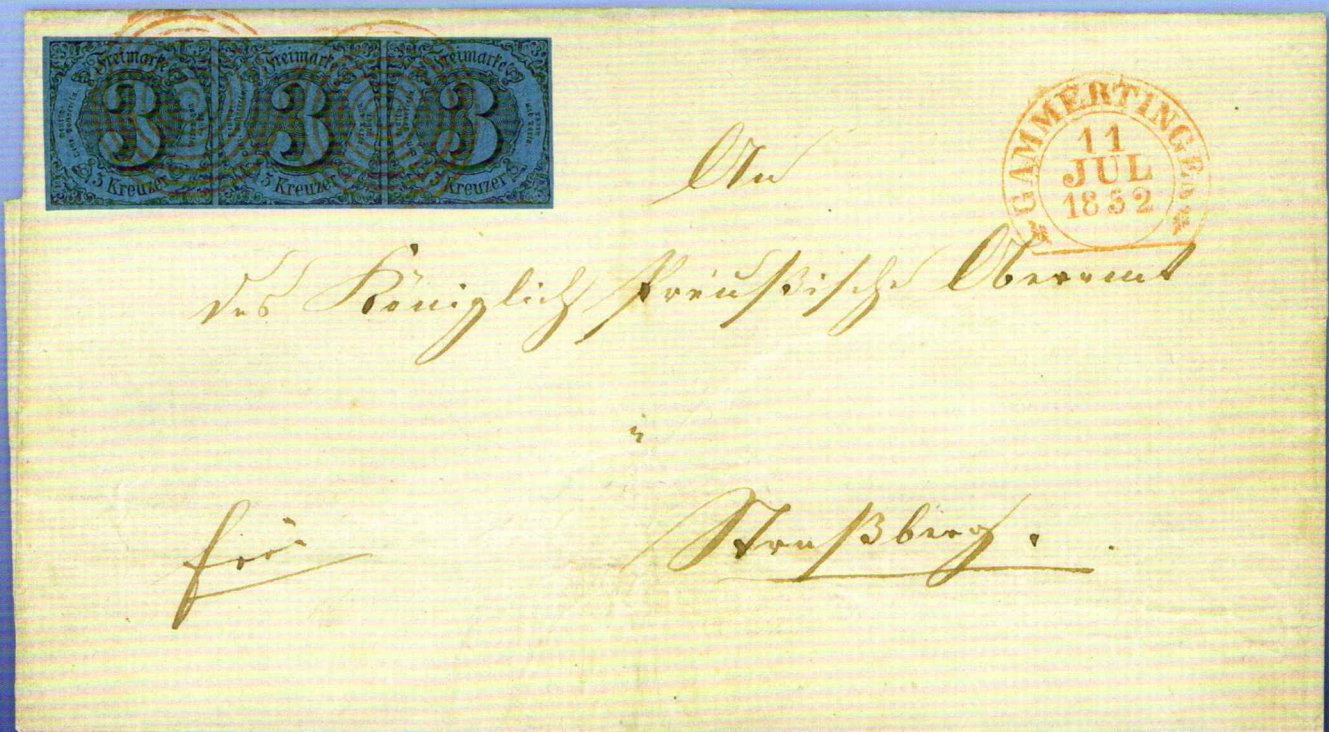 Freimarke Freimarke Freimarke
3 3 3
3 Kreuzer 3 Kreuzer 3 Kreuzer
GAMMERTINGEN
11
JUL
1852
An
das Königlich Preußische Oberamt
in
Straßberg.
frei